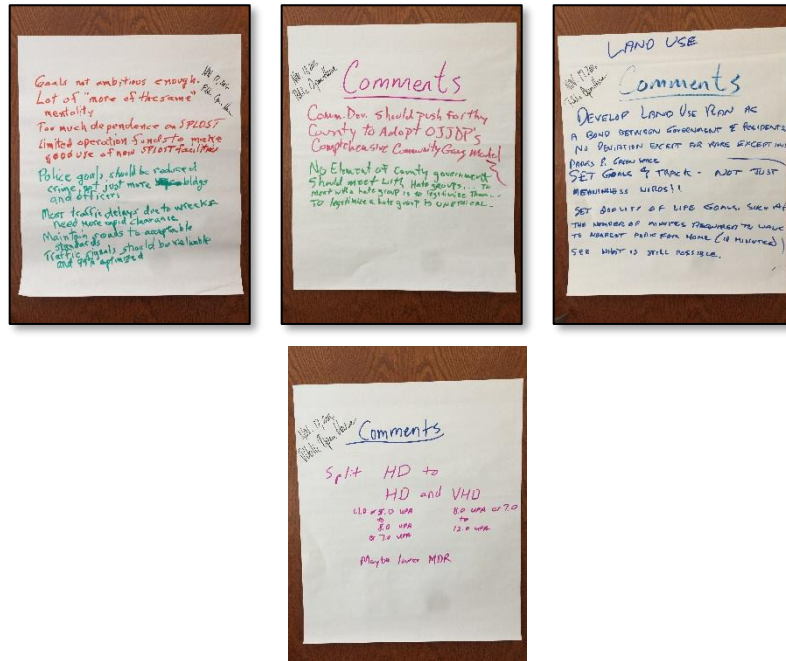 Goals not ambitious enough.
Lot of "more of the same"
mentality
Too much dependence on SPLOST
Limited operation funds to make
good use of new SPLOST facilities
Police goals should be reduced
crime not just more bldgs
and officers
Most traffic delays due to wrecks
need more rapid clearance
Maintain roads to acceptable
standards
Traffic signals should be
and 99% optimized
Nov 17,
Public Open House
Comments
Comm. Dev. should push for the
County to Adopt OJJDP's
Comprehensive Community Gang Model
No Element of county government
should meet with Hate groups... To
meet with a hate group is to legitimize them...
To legitimize a hate group is UNETHICAL.
LAND USE
Nov 17,
Public Open House
Comments
DEVELOP LAND USE PLAN AS
A BOND BETWEEN GOVERNMENT & RESIDENTS
NO DEVIATION EXCEPT FOR RARE EXCEPTION
PARKS & GREEN SPACE
SET GOALS & TRACK - NOT JUST
MEANINGLESS WORDS!!
SET QUALITY OF LIFE GOALS. SUCH AS
THE NUMBER OF MINUTES REQUIRED TO WALK
TO NEAREST PARK FROM HOME (10 MINUTES)
SEE WHAT IS STILL POSSIBLE.
Nov. 17,
Public Open House
Comments
Split HD to
HD and VHD
5.0 UPA 8.0 UPA or 7.0
to to
8.0 UPA 12.0 UPA
or 7.0 UPA
Maybe lower MDR